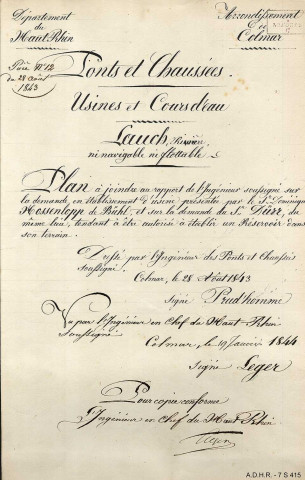 Département
du
Haut Rhin
Arrondissement
de
Colmar
Pièce N° 12
du 28 août
1843
Ponts et Chaussées.
Usines et Cours d'eau
Lauch, Rivière
ni navigable ni flottable.
Plan à joindre au rapport de l'Ingénieur soussigné sur
la demande en établissement d'usine présentée par le Sr Dominique
Hossenlopp de Bühl, et sur la demande du Sr Dürr, du
même lieu, tendant à être autorisé à établir un Réservoir dans
son terrain.
Dressé par l'Ingénieur des Ponts et Chaussées
soussigné.
Colmar, le 28 Août 1843
Signé Prudhomme
Vu par l'Ingénieur en Chef du Haut Rhin
soussigné
Colmar, le 19 Janvier 1844
Signé Leger
Pour copie conforme
l'Ingénieur en Chef du Haut Rhin
A.D.H.R. - 7 S 415